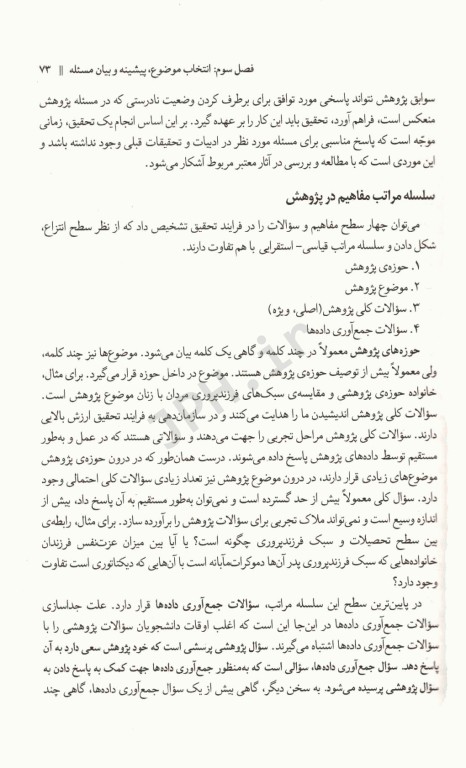 فصل سوم: انتخاب موضوع، پیشینه و بیان مسئله || ۷۳
سوابق پژوهش نتواند پاسخی مورد توافق برای برطرف کردن وضعیت نادرستی که در مسئله پژوهش
منعکس است، فراهم آورد، تحقیق باید این کار را بر عهده گیرد. بر این اساس انجام یک تحقیق، زمانی
موجّه است که پاسخ مناسبی برای مسئله مورد نظر در ادبیات و تحقیقات قبلی وجود نداشته باشد و
این موردی است که با مطالعه و بررسی در آثار معتبر مربوط آشکار می‌شود.
سلسله مراتب مفاهیم در پژوهش
می‌توان چهار سطح مفاهیم و سؤالات را در فرایند تحقیق تشخیص داد که از نظر سطح انتزاع،
شکل دادن و سلسله مراتب قیاسی- استقرایی با هم تفاوت دارند.
۱. حوزه‌ی پژوهش
۲. موضوع پژوهش
۳. سؤالات کلی پژوهش(اصلی، ویژه)
۴. سؤالات جمع‌آوری داده‌ها
حوزه‌های پژوهش معمولاً در چند کلمه و گاهی یک کلمه بیان می‌شود. موضوع‌ها نیز چند کلمه،
ولی معمولاً بیش از توصیف حوزه‌ی پژوهش هستند. موضوع در داخل حوزه قرار می‌گیرد. برای مثال،
خانواده حوزه‌ی پژوهشی و مقایسه‌ی سبک‌های فرزندپروری مردان با زنان موضوع پژوهش است.
سؤالات کلی پژوهش اندیشیدن ما را هدایت می‌کنند و در سازمان‌دهی به فرایند تحقیق ارزش بالایی
دارند. سؤالات کلی پژوهش مراحل تجربی را جهت می‌دهند و سؤالاتی هستند که در عمل و به‌طور
مستقیم توسط داده‌های پژوهش پاسخ داده می‌شوند. درست همان‌طور که در درون حوزه‌ی پژوهش
موضوع‌های زیادی قرار دارند، در درون موضوع پژوهش نیز تعداد زیادی سؤالات کلی احتمالی وجود
دارد. سؤال کلی معمولاً بیش از حد گسترده است و نمی‌توان به‌طور مستقیم به آن پاسخ داد، بیش از
اندازه وسیع است و نمی‌تواند ملاک تجربی برای سؤالات پژوهش را برآورده سازد. برای مثال، رابطه‌ی
بین سطح تحصیلات و سبک فرزندپروری چگونه است؟ یا آیا بین میزان عزت‌نفس فرزندان
خانواده‌هایی که سبک فرزندپروری پدر آن‌ها دموکرات‌مآبانه است با آن‌هایی که دیکتاتوری است تفاوت
وجود دارد؟
در پایین‌ترین سطح این سلسله مراتب، سؤالات جمع‌آوری داده‌ها قرار دارد. علت جداسازی
سؤالات جمع‌آوری داده‌ها در این‌جا این است که اغلب اوقات دانشجویان سؤالات پژوهشی را با
سؤالات جمع‌آوری داده‌ها اشتباه می‌گیرند. سؤال پژوهشی پرسشی است که خود پژوهش سعی دارد به آن
پاسخ دهد. سؤال جمع‌آوری داده‌ها، سؤالی است که به‌منظور جمع‌آوری داده‌ها جهت کمک به پاسخ دادن به
سؤال پژوهشی پرسیده می‌شود. به سخن دیگر، گاهی بیش از یک سؤال جمع‌آوری داده‌ها، گاهی چند